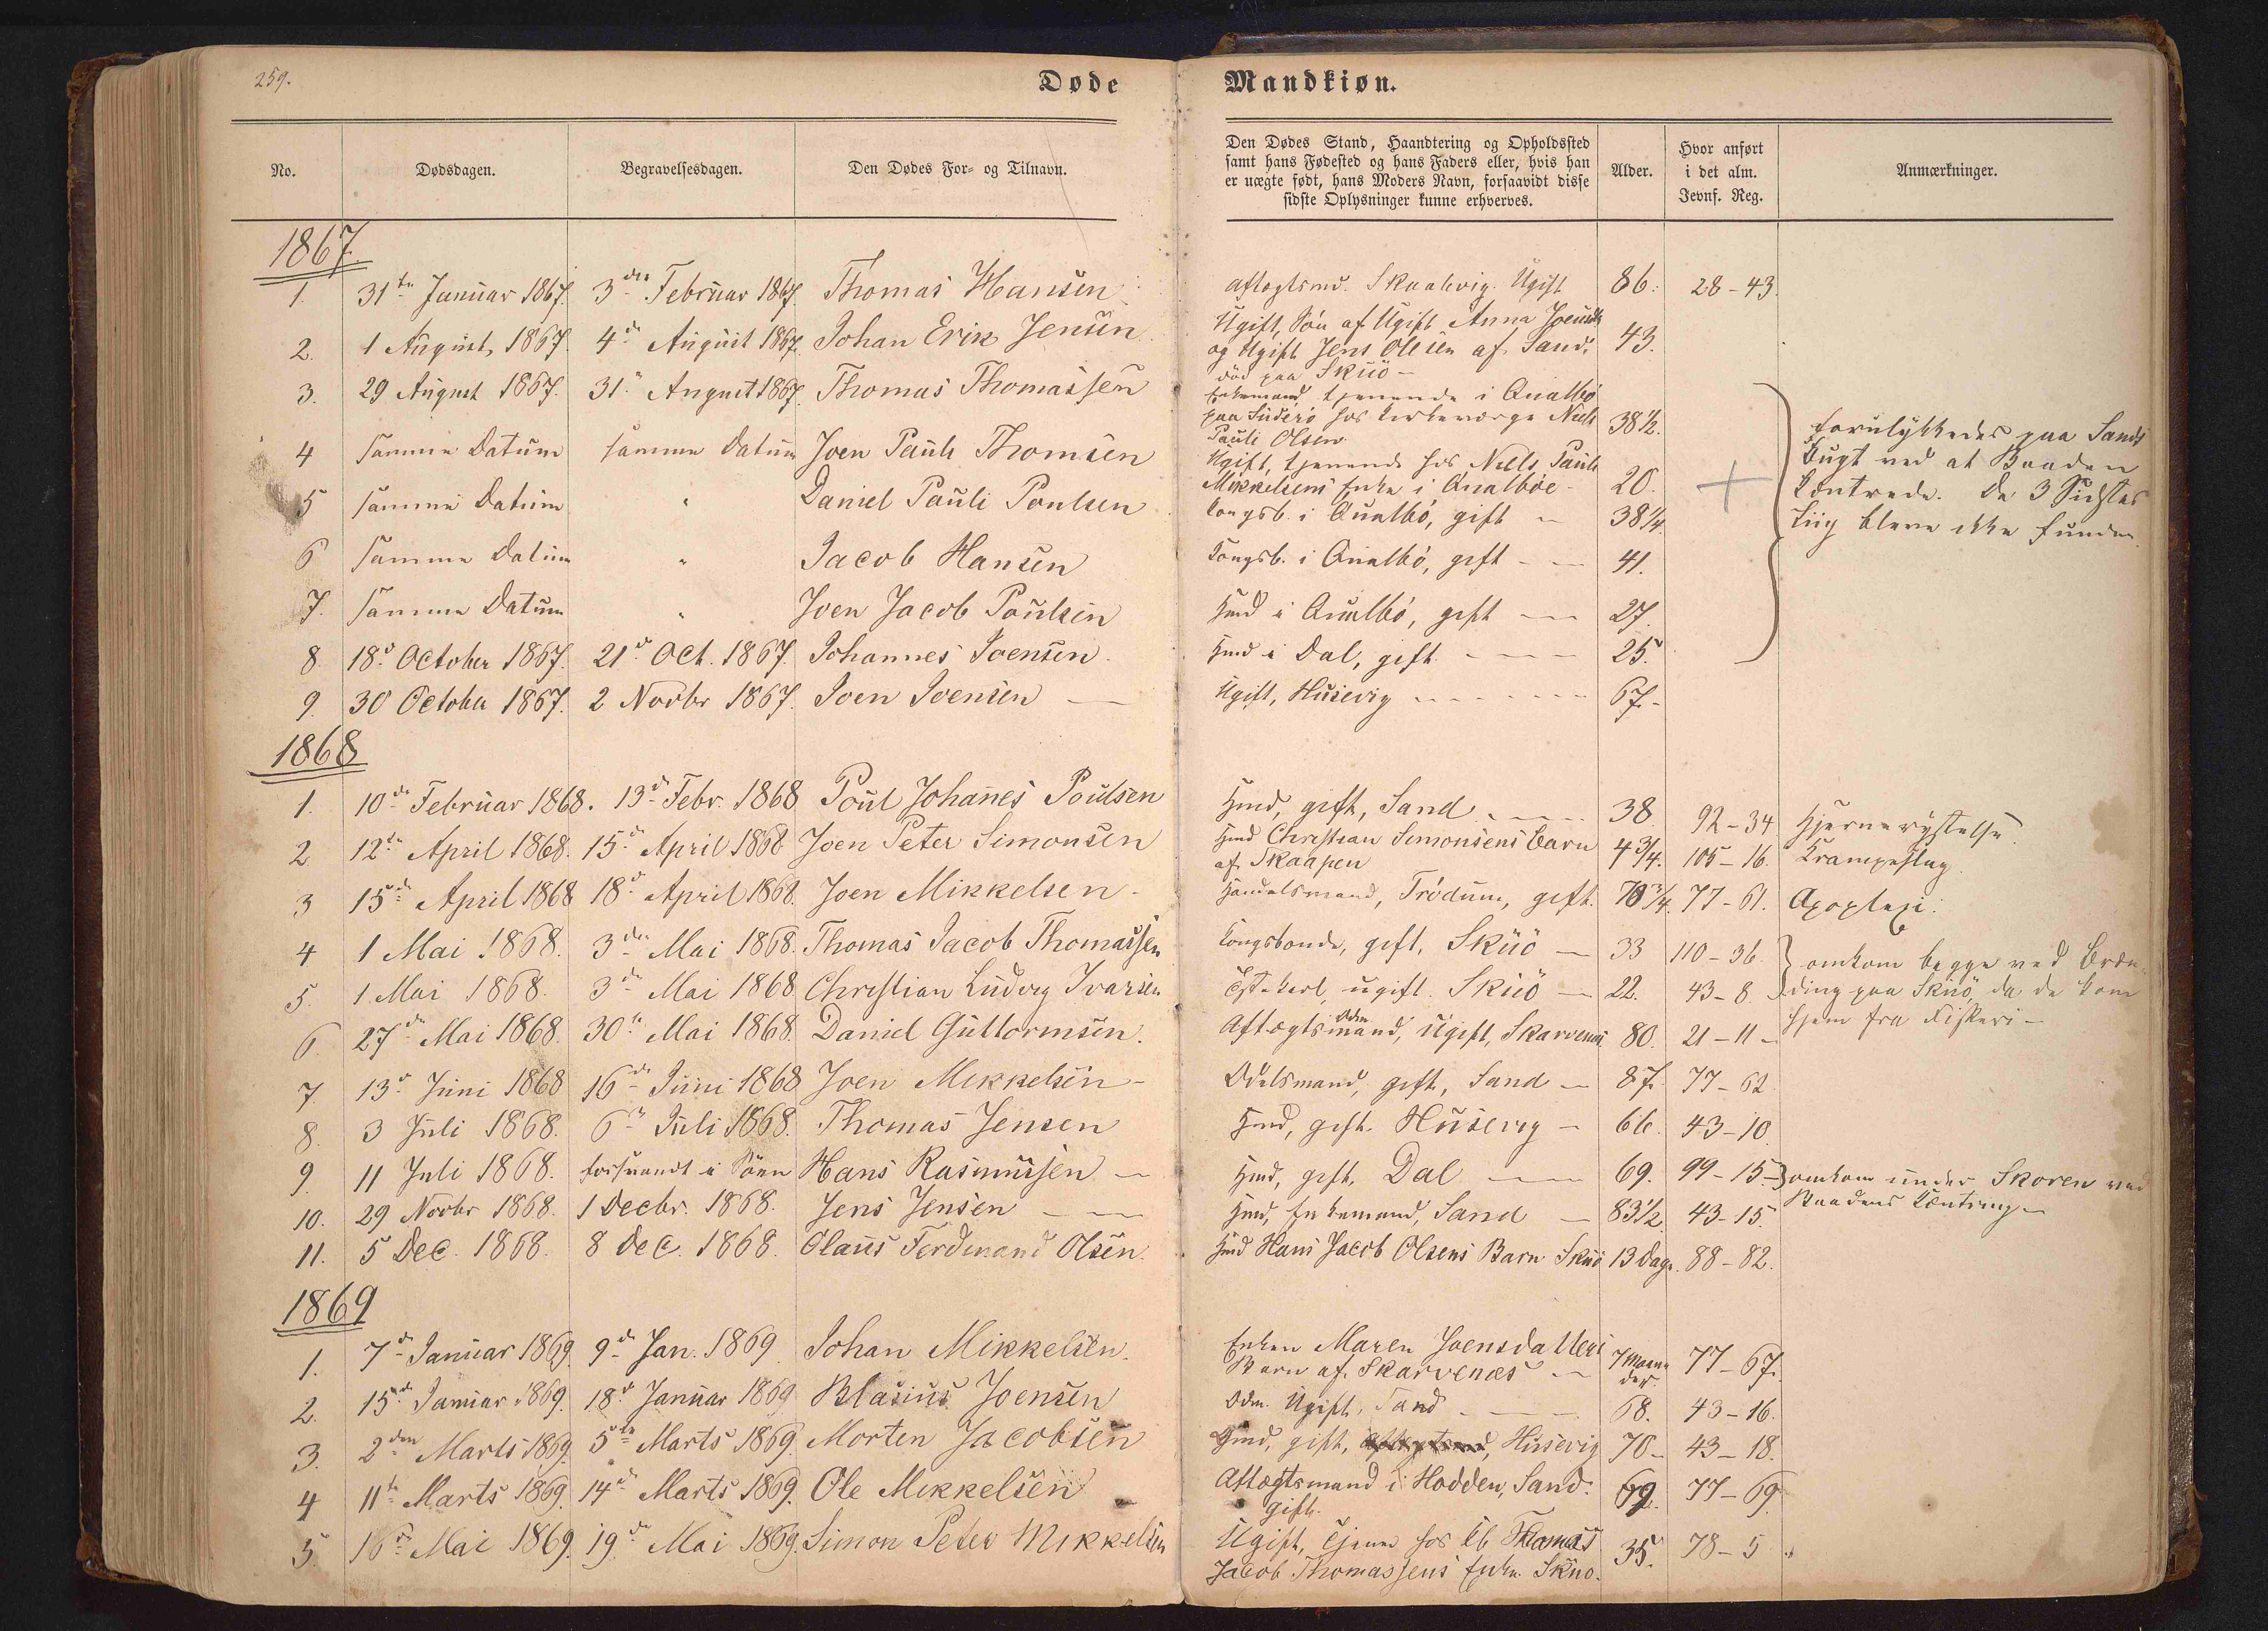 259.
Døde
Mandkiøn.
No.
Dødsdagen.
Begravelsesdagen.
Den Dødes For- og Tilnavn.
Den Dødes Stand, Haandtering og Opholdssted
samt hans Fødested og hans Faders eller, hvis han
er uægte født, hans Moders Navn, forsaavidt disse
sidste Oplysninger kunne erhverves.
Alder.
Hvor anført
i det alm.
Jevnf. Reg.
Anmærkninger.
1867.
1. 31te Januar 1867. 3die Februar 1867. Thomas Hansen Aftægtsmd. Skaalevig. Ugift 86. 28-43.
2. 1 August 1867. 4de August 1867. Johan Erik Jensen Ugift, Søn af Ugift Anna Joensd.
og Ugift Jens Olesen af Sand, 43.
død paa Skuö -
3. 29 August 1867. 31. August 1867. Thomas Thomassen Enkemand tjenende i Qualbö
paa Suderö hos Kirkeværge Niels 38 1/2.
Pauli Olsen
4 Samme Datum samme Datum Joen Pauli Thomsen Ugift, tjenende hos Niels Pauli
Mikkelsens Enke i Qualböe - 20.
5 samme Datum " Daniel Pauli Poulsen Kongsb. i Qualbö, gift - 38 1/4.
6 samme Datum " Jacob Hansen Kongsb. i Qualbö, gift - - 41.
7. samme Datum " Joen Jacob Poulsen Hmd i Qualbö, gift - 27.
forulykkedes paa Sands
Bugt ved at Baaden
kæntrede. De 3 Sidstes
Liig bleve ikke funden
8. 18de October 1867. 21de Oct. 1867. Johannes Joensen. Hmd i Dal, gift. - - - 25.
9. 30 October 1867. 2 Novbr 1867. Joen Joensen - Ugift, Husevig - - - 67.-
1868
1. 10de Februar 1868. 13de Febr. 1868 Poul Johanes Poulsen Hmd, gift, Sand - - 38. 92-34 Hjernerystelse.
2 12te April 1868. 15de April 1868 Joen Peter Simonsen Hmd Christian Simonsens Barn
af Skaapen 4 3/4. 105-16. Krampeslag.
3 15de April 1868 18de April 1868. Joen Mikkelsen - Handelsmand, Trödum, gift. 70 3/4. 77-61. Apoplexi.
4 1 Mai 1868. 3die Mai 1868. Thomas Jacob Thomassen Kongsbonde, gift, Skuö - 33 110-36.
5. 1. Mai 1868. 3die Mai 1868 Christian Ludvig Ivarsen ugift. Skuö - 22. 43-8.
omkom begge ved Bræn-
ding paa Skuö, da de kom
hjem fra Fiskeri -
6. 27de Mai 1868. 30te Mai 1868. Daniel Guttormsen. Aftægtsmand, Odm. Ugift, Skarvenæs 80. 21-11-
7. 13de Juni 1868 16de Juni 1868 Joen Mikkelsen - Odelsmand, gift, Sand - 87. 77-62
8. 3 Juli 1868. 6te Juli 1868. Thomas Jensen Hmd, gift. Husevig - 66. 43-10.
9. 11 Juli 1868. forsvandt i Söen Hans Rasmussen - Hmd, gift, Dal - 69. 99-15- omkom under Skoren ved
Baadens Kæntring -
10. 29 Novbr 1868. 1 Decbr. 1868. Jens Jensen - - Hmd, Enkemand, Sand - 83 1/2 43-15.
11. 5 Dec. 1868. 8 Dec. 1868. Olaus Ferdinand Olsen. Hmd Hans Jacob Olsens Barn Skuö 13 Dage. 88-82.
1869
1. 7de Januar 1869. 9de Jan. 1869 Johan Mikkelsen. Enken Maren Joensdatters
Barn af Skarvenæs - 7 Maane
der. 77-67.
2. 15de Januar 1869. 18de Januar 1869 Blasius Joensen Odm. Ugift, Sand - - 68. 43-16.
3. 2den Marts 1869. 5te Marts 1869. Morten Jacobsen Hmd, gift, Husevig 70- 43-18.
4 11te Marts 1869. 14de Marts 1869. Ole Mikkelsen Aftægtsmand i Hodden, Sand.
gift. 69. 77-69
5. 16de Mai 1869. 19de Mai 1869. Simon Peter Mikkelsen Ugift, tjener hos Kb Thomas
Jacob Thomassens Enke Skuo. 35. 78-5